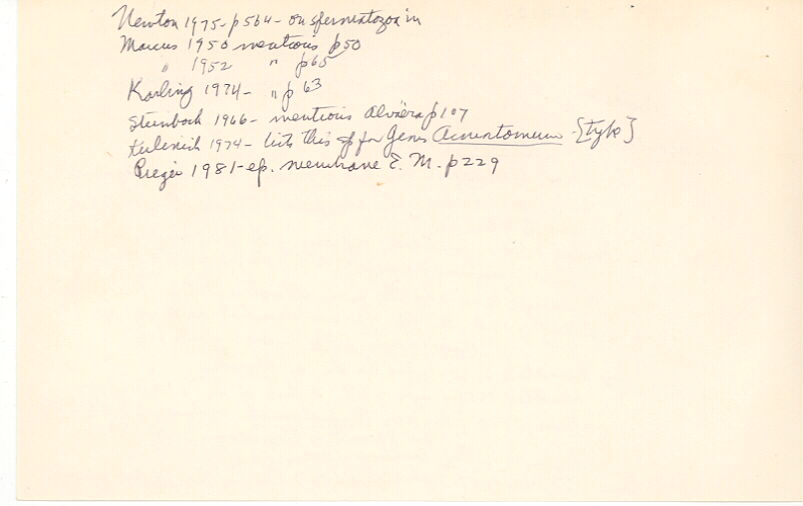 Newton 1975-p564- on spermatozoa in
Marcus 1950 mentions p50
" 1952 " p65
Karling 1974- " p 63
Steinbock 1966- mentions p107
1974- lists this sp for Genus [type]
1981-ep. membrane E. M. p229